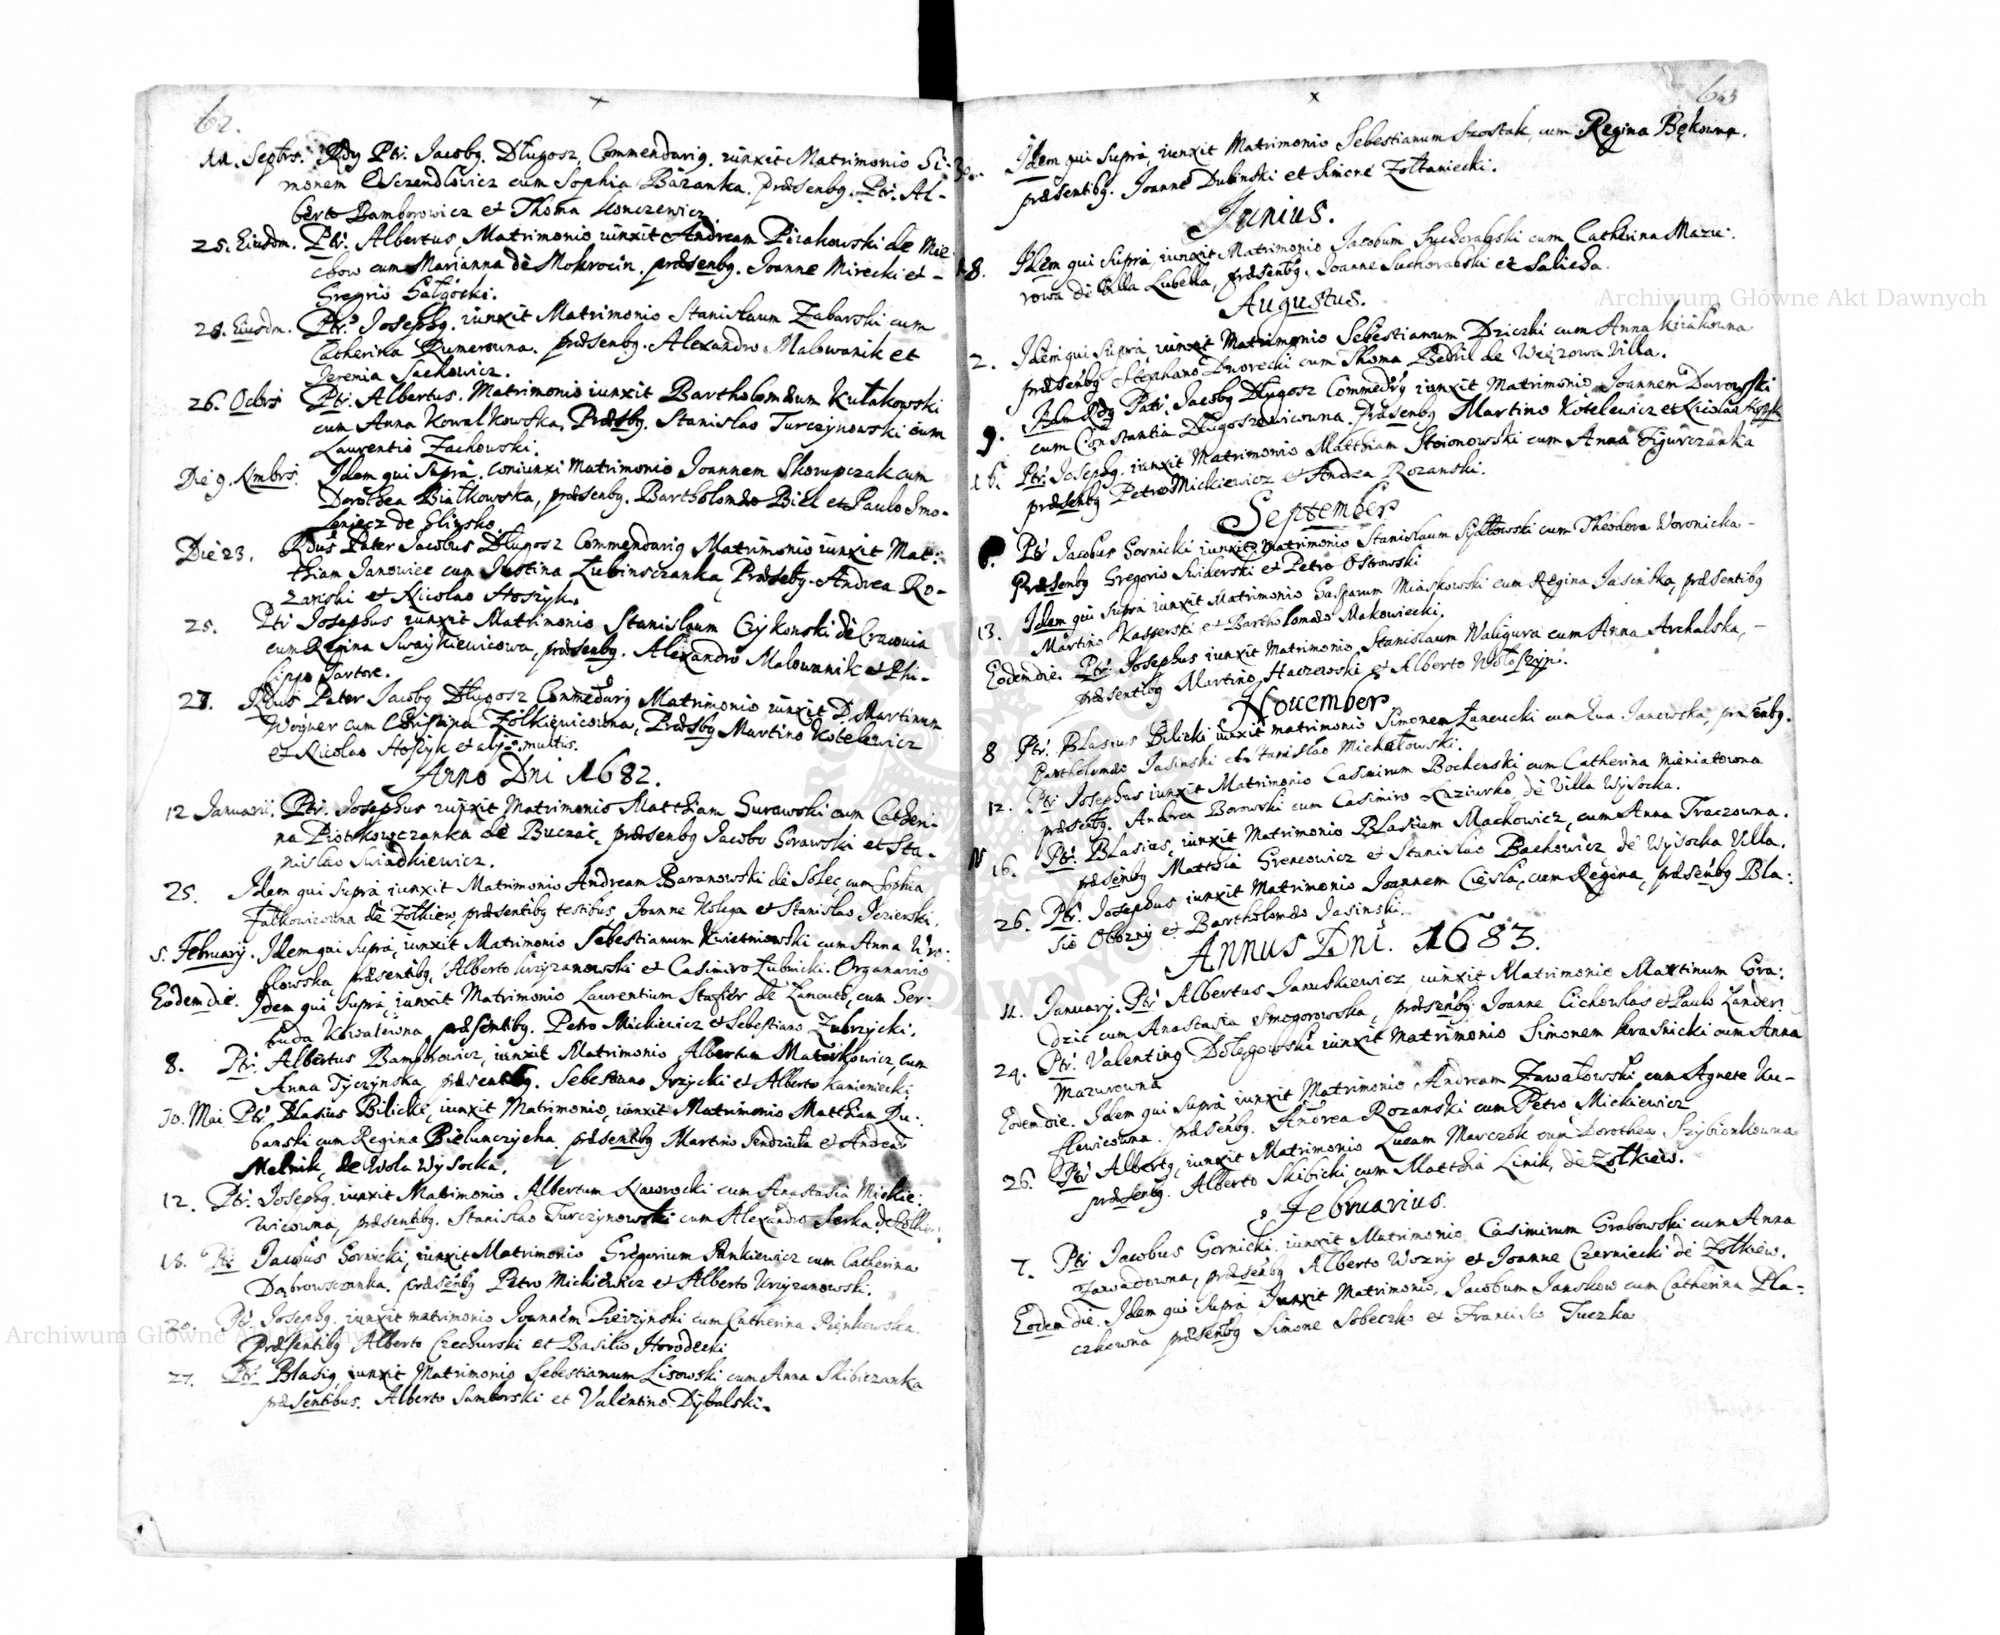 62.
11. Septrs. Rdy Ptr. Jacoby. Długosz, Commendarig. iunxit Matrimonio Si-
monem cum Sophia Bazanka. præsenbg. Ptr. Al-
berto Bamborowicz et Thoma
25. Eiusdm. Ptr. Albertus, Matrimonio iunxit Andream Pirakowski de Mie
chow cum Marianna de Mokrocin. præsenbg. Joanne Mirecki et -
Gregrio
28. Eiusdm. Ptr. Josephg. iunxit Matrimonio Stanisłaum Zabarski cum
Catherina Rumerowna. præsenbg. Alexandro Malowanik et
Jeremia Sachowicz.
26. Ocbrs Ptr. Albertus. Matrimonio iunxit Bartholomæum Kułakowski
cum Anna Kowalkowska, Præsbg. Stanislao Turczynowski cum
Laurentio Zachowski.
Die 9. Nmbrs. Idem qui supra. coniunxi matrimonio Joannem Skorupczak cum
Dorothea Białkowska, præsenbg. Bartholomæo Biel et Paulo Smo-
de Glinsko.
Die 23. Rdus Pater Jacobus Długosz Commendarig Matrimonio iunxit Mat:
thiam Janowicz cum Justina Łubinsczanka, Præsebg. Andrea Ro-
zanski et Nicolao Hoszyk.
25. Ptr Josephus iunxit Matrimonio Stanislaum Czykonski de Cracovia
cum Regina Swaykiewicowa, præsenbg. Alexandro Malownnik et Phi-
lippo Sartore.
27. Rdus Pater Jacobg Długosz Commedarg Matrimonio iunxit D. Martinum
Wogner cum Christina Zołkiewicowna, Præsbg Martino Kotelewicz
et Nicolao Hoszyk et alys multis.
Anno Dni 1682.
12 Januarii. Ptr. Josephus iunxit Matrimonio Matthiam Gurawski cum Catheri-
na Piotrkowczanka de Buczac, præsenbg Jacobo Gorawski et Sta-
nislao Swiadkiewicz.
25. Idem qui supra iunxit Matrimonio Andream Baranowski de Solec, cum Sophia
Fałkowicowna de Zołkiew, præsentibg testibus, Joanne Kolega et Stanislao Jezierski.
5. February. Idem qui supra, iunxit Matrimonio Sebestianum Kwietniowski cum Anna Wro:
blowska præsentibg, Alberto Krzyzanowski et Casimiro Łubnicki. Organario
Eodem die. Idem qui supra, iunxit Matrimonio Laurentium de Lancuto, cum Ger-
Kowalewna, præsentibg. Petro Mickiewicz et Sebestiano Zubrzycki.
8. Ptr. Albertus Bamborowicz, iunxit Matrimonio Albertum Materkowicz, cum
Anna Tyczynska, præsentibg. Sebestiano Jrzycki et Alberto Kamieniecki.
10. Mai Ptr. Blasius Bilicki, iunxit Matrimonio, iunxit Matrimonio Mattham Ru:
banski cum Regina Bielunczycha, præsentibg Martino Sendziuła et Andrea
Melnik, de Wola Wysocka.
12. Ptr. Josephg. iunxit Matrimonio Albertum Nawrocki cum Anastasia Mickie:
wicowna, præsentibg. Stanislao Turczynowski cum Alexandro Serka de Zolkiew:
18. Ptr Jacobus Gornicki, iunxit Matrimonio Gregorium Pankiewicz cum Catherina
Dąbrowsczanka. præsenbg Petro Mickiewicz et Alberto Krzyzanowski.
20. Ptr. Josephg. iunxit matrimonio Joannem Pierzynski cum Catherina Pięnkowska.
Præsentibg Alberto Czechurski et Basilio Horodecki
27. Ptr. Blasig, iunxit Matrimonio Sebestianum Lisowski cum Anna Skibiczanka
præsentibus. Alberto Samborski et Valentino Dybalski.
63
30. Idem qui supra, iunxit Matrimonio Sebestianum Szostak, cum Regina Bękowna.
præsentibg. Joanne Dubinski et Simone Zołtaniecki.
Junius.
8. Idem qui supra, iunxit Matrimonio Jacobum Suchorabski cum Catherina Mazu:
rowa de Villa Lubella, præsenbg. Joanne Suchorabski et Salieha.
Augustus.
2. Idem qui supra, iunxit Matrimonio Sebestianum Dziczki cum Anna
præsenbg Stephano Dworecki cum Thoma Bedril de Więzowa Villa.
9. Idem Rdg Patr. Jacobg Długosz Commedrg iunxit Matrimonio, Joannem Durowski
cum Constantia Długoszewicowna. Præsenbg Martino Kotelewicz et Nicolao Hoszyk
16. Ptr. Josephg. iunxit Matrimonio Matthiam Stoionowski cum Anna Figurczanka
præsenbg Petro Mickiewicz et Andrea Rozanski.
September
6. Ptr Jacobus Gornicki iunxit matrimonio Stanislaum cum Theodora Woronicka -
Præsenbg Gregorio Swiderski et Petro Ostrowski
13. Idem qui supra iunxit Matrimonio Gasparum Miaskowski cum Regina Jasinska, præsentibg
Martino Kasperski et Bartholomæo Makowiecki.
Eodem die. Ptr. Josephus iunxit Matrimonio, Stanislaum Waligura cum Anna Archalska, -
præsentibg Martino Haczewski et Alberto Wołoszyn.
November
8 Ptr. Blasius Bilicki iunxit matrimonio Simonem Łanczucki cum Eva Janowska, præsenbg.
Bartholomæo Jasinski et Stanislao Michałowski.
12. Ptr Josephus iunxit Matrimonio Casimirum Bochenski cum Catherina Mieniatowna
præsenbg. Andrea Borowski cum Casimiro Kaziursko, de Villa Wysocka.
16. Ptr. Blasius, iunxit Matrimonio Blasium Mackowicz, cum Anna Tkaczowna.
præsenbg Matthia Grencowicz et Stanislao Bachowicz de Wysocka Villa.
26. Ptr. Josephus iunxit Matrimonio Joannem Ciesla, cum Regina, præsenbg Bla-:
sio Obozny et Bartholomæo Jasinski.
Annus Dni. 1683.
11. Januarj. Ptr Albertus Januskiewicz, iunxit Matrimonio Martinum Gra:
dzic cum Anastasia Smogorowska, præsenbg. Joanne Cichowlas et Paulo Zander.
24. Ptr. Valenting Dołęgowski iunxit matrimonio Simonem Krasnicki cum Anna
Mazurowna
Eodem die. Idem qui supra iunxit Matrimonio Andream Zawałowski cum Agnete Ku-
flewicowna. præsenbg. Andrea Rozanski cum Petro Mickiewicz
26. Ptr Albertg, iunxit Matrimonio Lucam Marczok cum Dorothea Szybionkowna
præsenbg. Alberto Skibicki, cum Matthia Linik, de Zołkiew.
Februarius.
7. Ptr Jacobus Gornicki. iunxit Matrimonio, Casimirum Grabowski cum Anna
Zawadowna, præsenbg Alberto Wozny et Joanne Czerniecki de Zołkiew.
Eodem die. Idem qui supra Junxit Matrimonio, Jacobum Janskow cum Catherina Pla-
czkowna præsenbg Simone Sobeczko et Francisco Tuczka
Archiwum Główne Akt Dawnych
Archiwum Główne Akt Dawnych